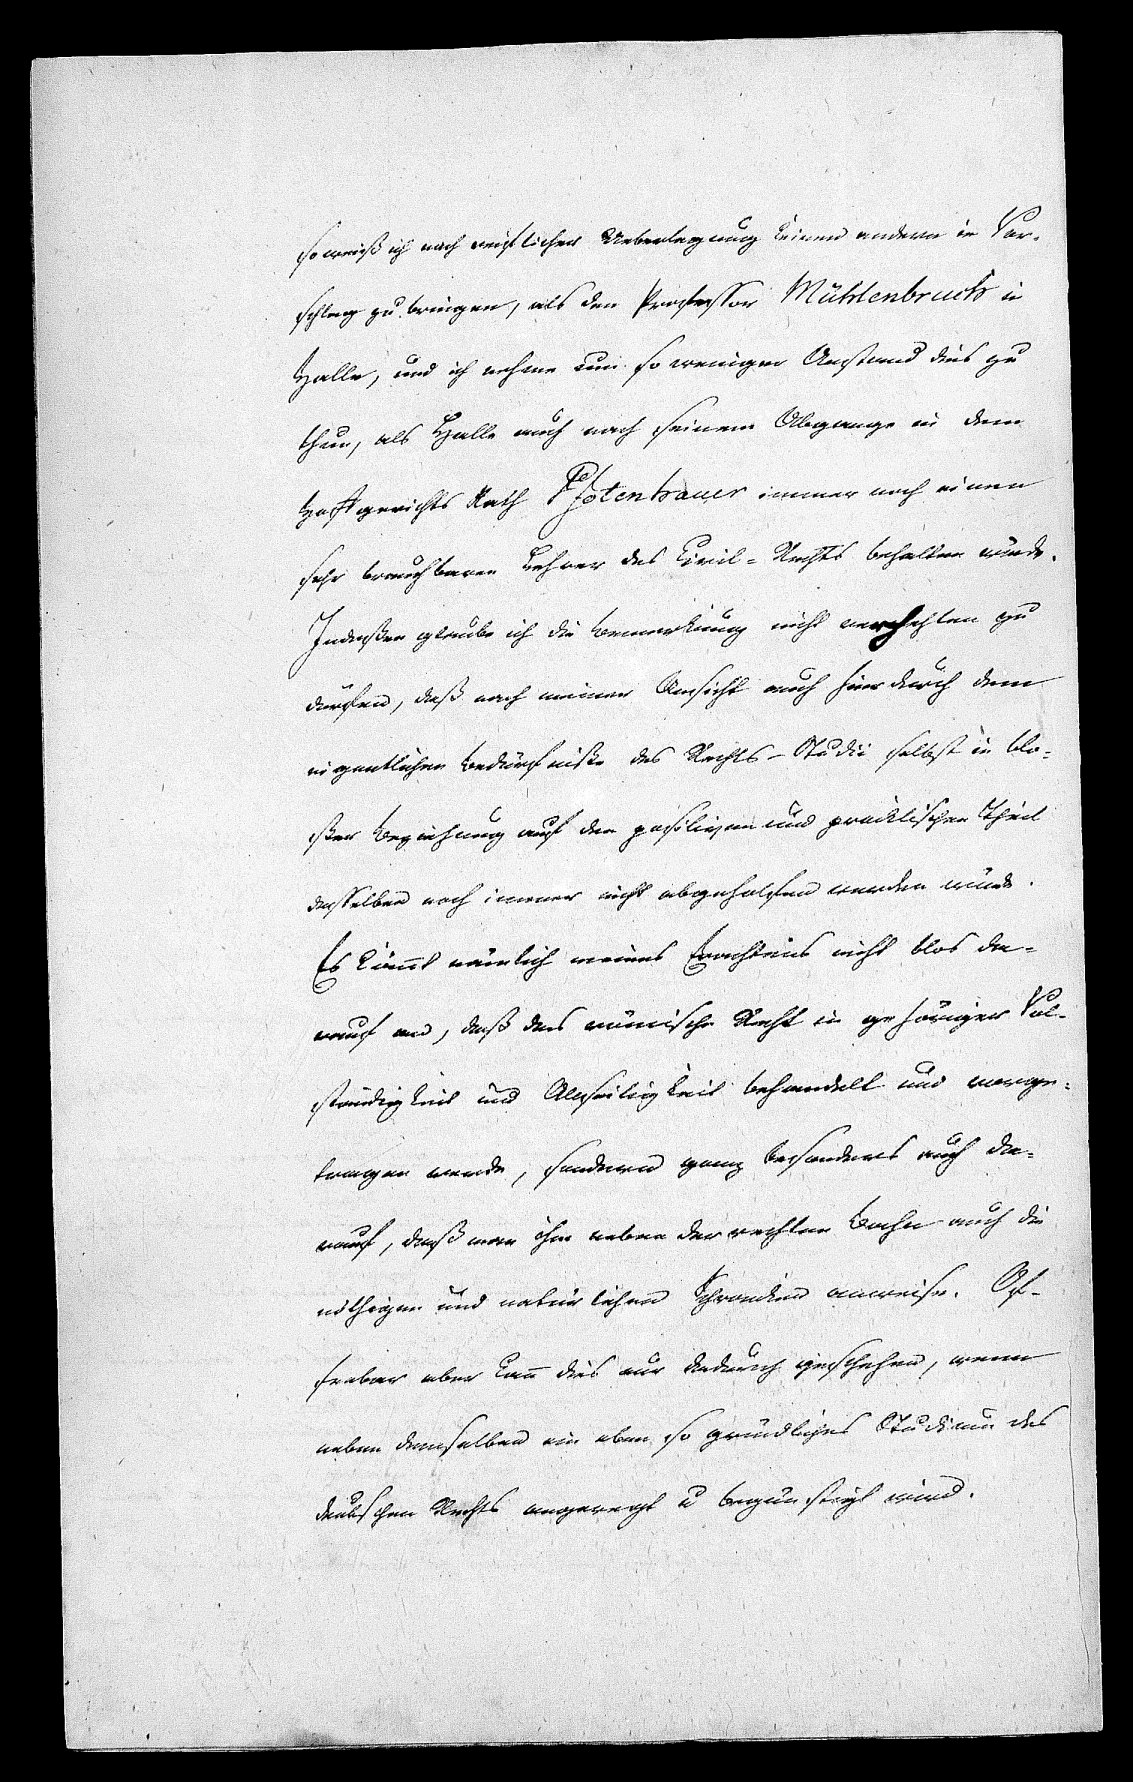 so weiß ich nach reiflicher Ueberlegung keinen andern in Vor-
schlag zu bringen, als den Professor Mühlenbruch in
Halle, und ich nehme um so weniger Anstand dies zu
thun, als Halle auch nach seinem Abgange in dem
Hofgerichts Rath Pfotenhauer immer noch einen
sehr brauchbaren Lehrer des Civil-Rechts behalten würde.
Indeßen glaube ich die Bemerkung nicht verhehlen zu
dürfen, daß nach meiner Ansicht auch hierdurch dem
eigentlichen Bedürfniße des Rechts-Studii selbst in blo-
ßer Beziehung auf den positiven und praktischen Theil
desselben noch immer nicht abgeholfen werden würde.
Es kömmt nämlich meines Erachtens nicht blos da-
rauf an, daß das römische Recht in gehöriger Vol-
ständigkeit und Allseitigkeit behandelt und vorge-
tragen werde, sondern ganz besonders auch da-
rauf, daß man ihm neben der rechten Bahn auch die
nöthigen und natürlichen Schranken anweise. Of-
fenbar aber kann dies nur dadurch geschehen, wenn
neben demselben ein eben so gründliches Studium des
deutschen Rechts angeregt u begünstigt wird.